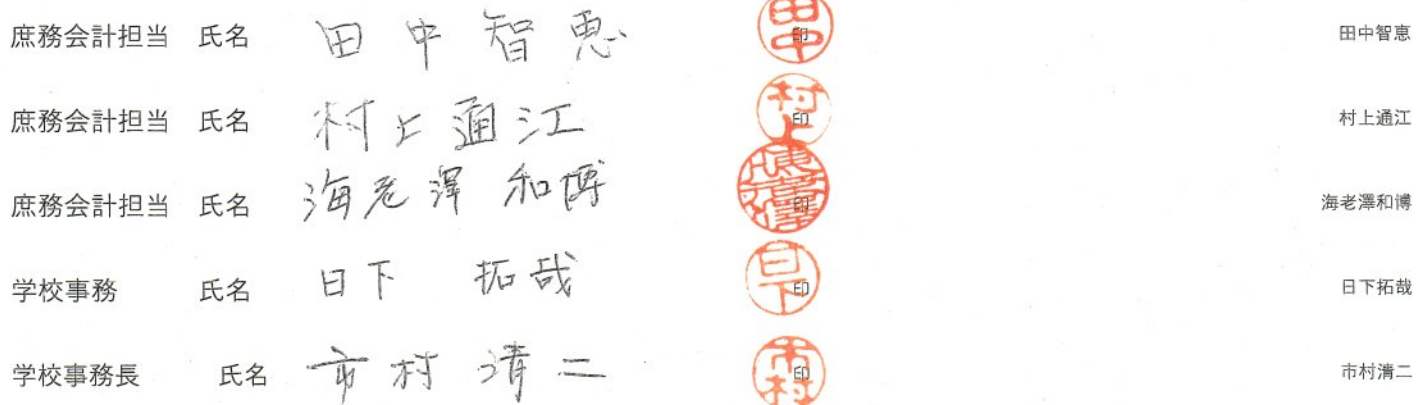 庶務会計担当 氏名 田中智恵 印 田中 田中智恵
庶務会計担当 氏名 村上通江 印 村上 村上通江
庶務会計担当 氏名 海老澤 和博 印 海老澤 海老澤和博
学校事務 氏名 日下 拓哉 印 日下 日下拓哉
学校事務長 氏名 市村 清二 印 市村 市村清二